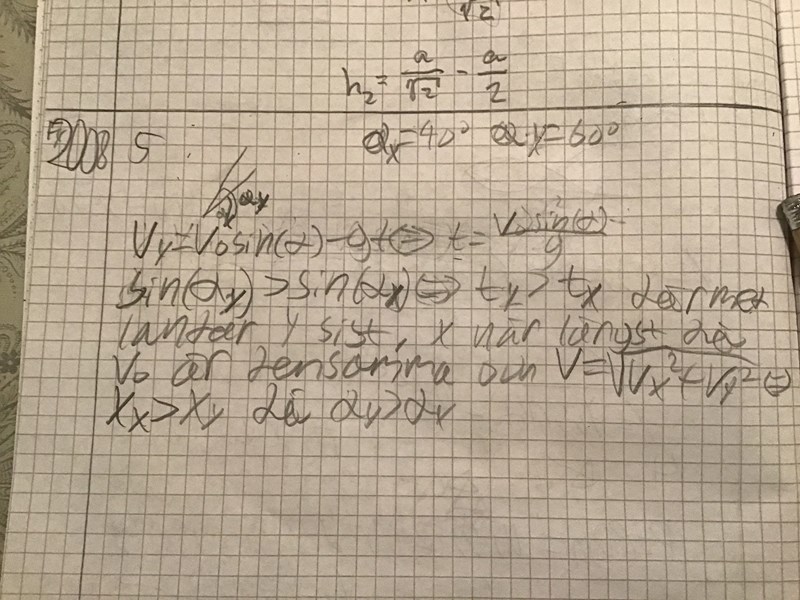 √2
h₂ = a/√2 - a/2
2008 5 αx=40° αy=60°
αx αy
Vy=V₀sin(α)-gt⇔ t= V₀sin(α)/g
sin(αy)>sin(αx)⇔ ty>tx därmed
landar y sist, x når längst då
V₀ är densamma och V=√Vx²+Vy² ⇔
Xx>Xy då αy>αx